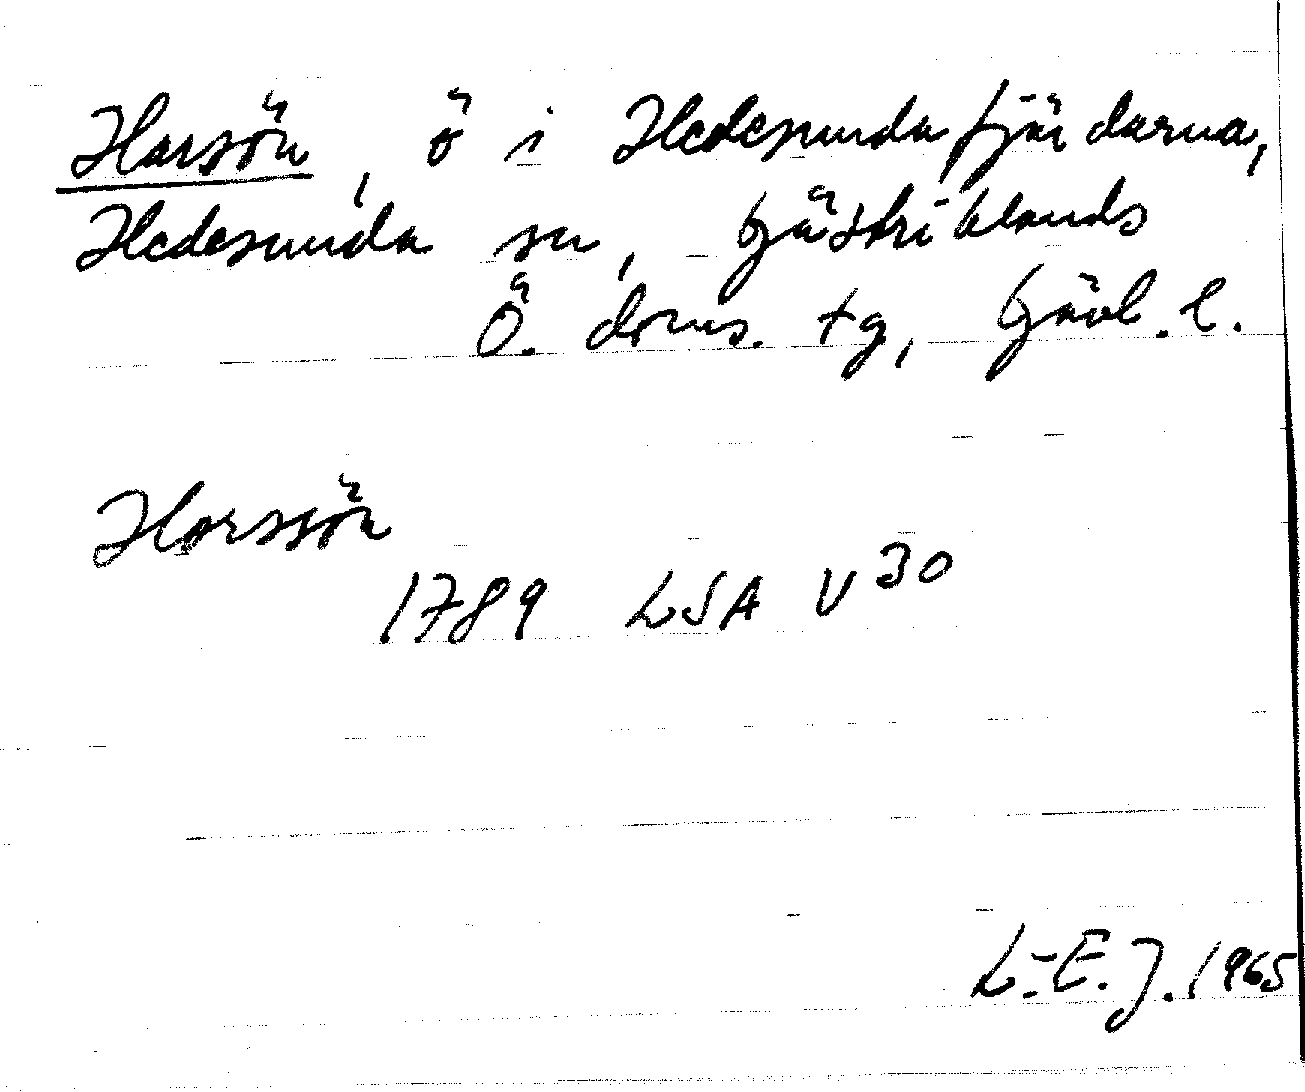 Harsön, ö i Hedesundafjärdarna,
Hedesunda sn, Gästriklands
Ö. doms. tg, Gävl. l.
Harssjön
1789 LSA V 30
L-E. J. 1965